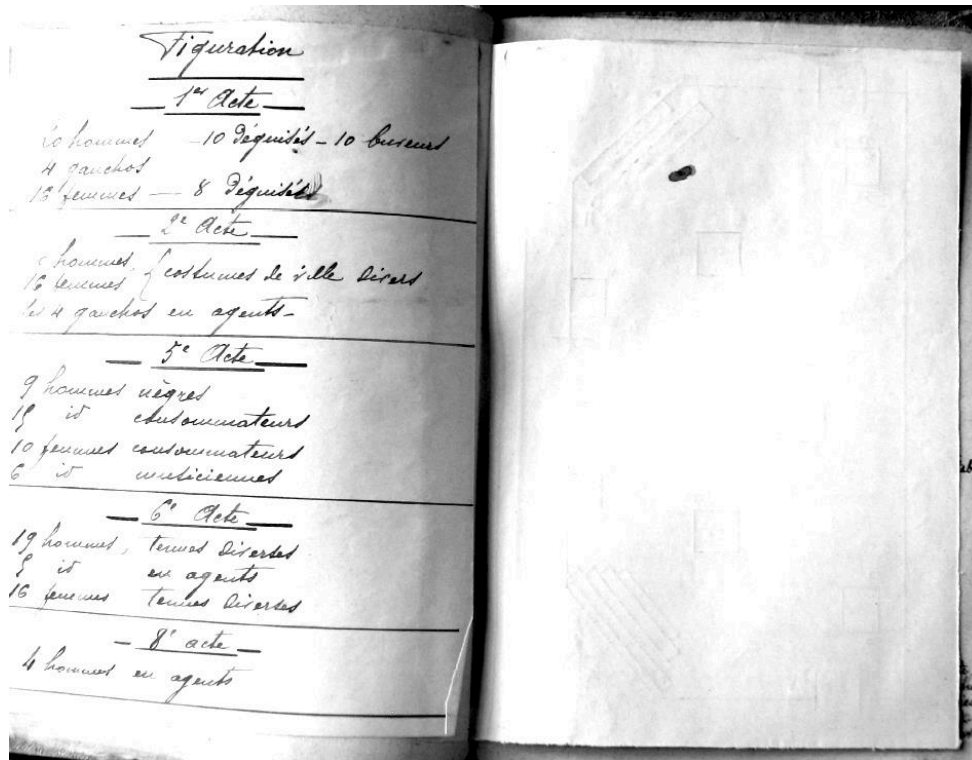 Figuration
1er Acte
20 hommes - 10 Déguisés - 10 buveurs
4 gauchos
16 femmes - 8 Déguisés
2e Acte
hommes,
16 femmes { costumes de ville divers
les 4 gauchos en agents -
5e Acte
9 hommes nègres
15 id consommateurs
10 femmes consommateurs
6 id musiciennes
6e Acte
19 hommes, tenues diverses
5 id en agents
16 femmes tenues diverses
8e acte
4 hommes en agents